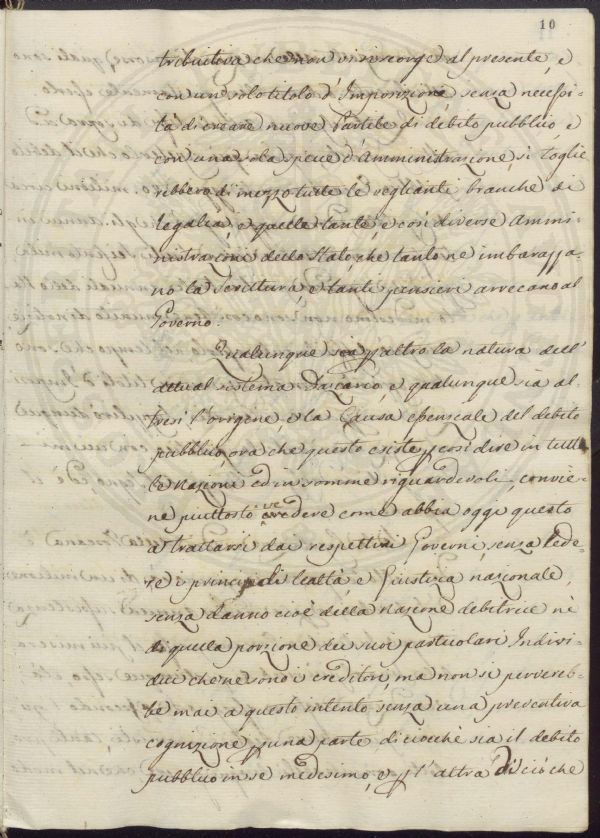 10
tributiva che non vi si scorge al presente, e
con un solo titolo d'Imposizione senza necessi-
tà di creare nuove Partite di debito pubblico, e
con una sola specie d'Amministrazione, si toglie
rebbero di mezzo tutte le veglianti branche di
regalia, e quelle tante, e così diverse Ammi-
nistrazioni dello Stato, che tanto ne imbarazza-
no la Scrittura, e tanti pensieri arrecano al
Governo.
Qualunque sia p altro la natura dell'
attual sistema Daziario, e qualunque sia al-
tresì l'origine e la Causa essenziale del debito
pubblico, ora che questo esiste p così dire in tutte
le Nazioni ed in somme riguardevoli, convie-
ne piuttosto vedere come abbia oggi questo
a trattarsi dai respettivi Governi, senza lede-
re i principj di lealtà e Giustizia nazionale,
senza danno cioè della Nazione debitrice nè
di quella porzione dei suoi particolari Indivi-
dui che ne sono i creditori, ma non si perverreb-
be mai a questo intento senza una preventiva
cognizione p una parte di ciocchè sia il debito
pubblico in se medesimo, e p l'altra di ciò che